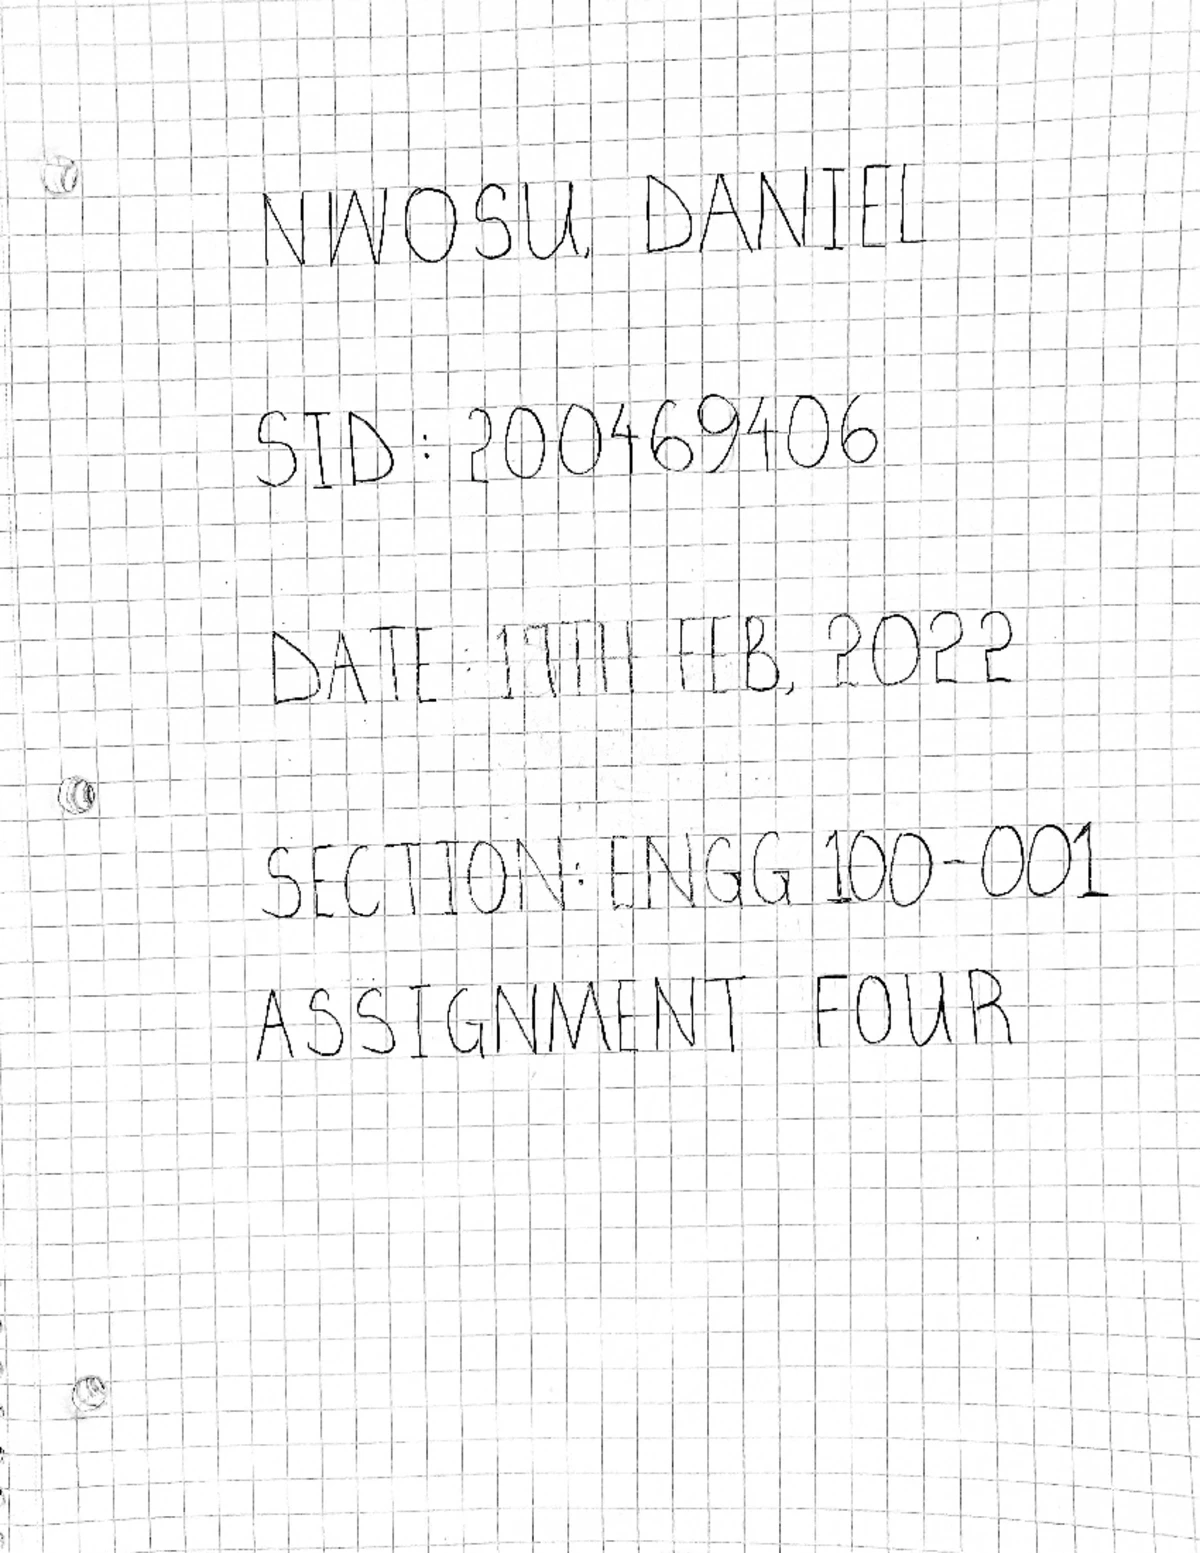 NWOSU, DANIEL
SID: 200469406
DATE: 17TH FEB, 2022
SECTION: ENGG 100-001
ASSIGNMENT FOUR